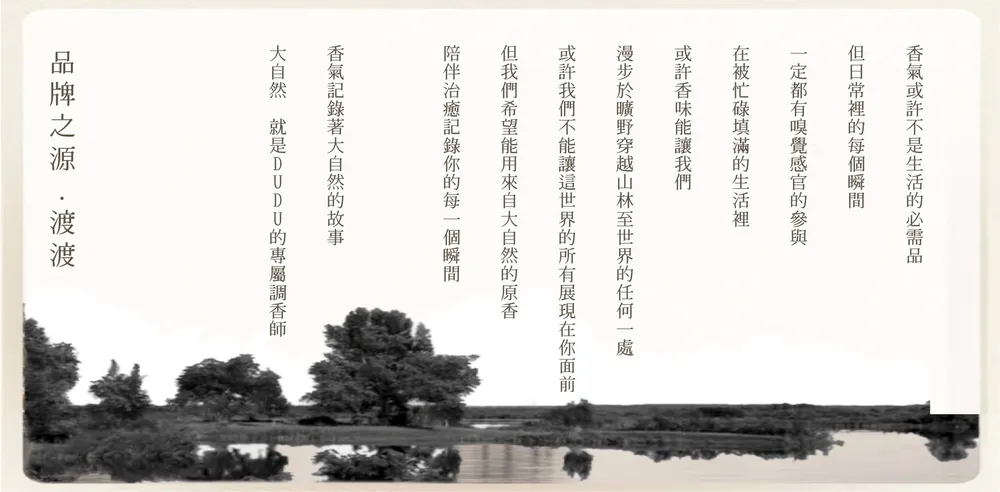 香氣或許不是生活的必需品
但日常裡的每個瞬間
一定都有嗅覺感官的參與
在被忙碌填滿的生活裡
或許香味能讓我們
漫步於曠野穿越山林至世界的任何一處
或許我們不能讓這世界的所有展現在你面前
但我們希望能用來自大自然的原香
陪伴治癒記錄你的每一個瞬間
香氣記錄著大自然的故事
大自然 就是DUDU的專屬調香師
品牌之源.渡渡